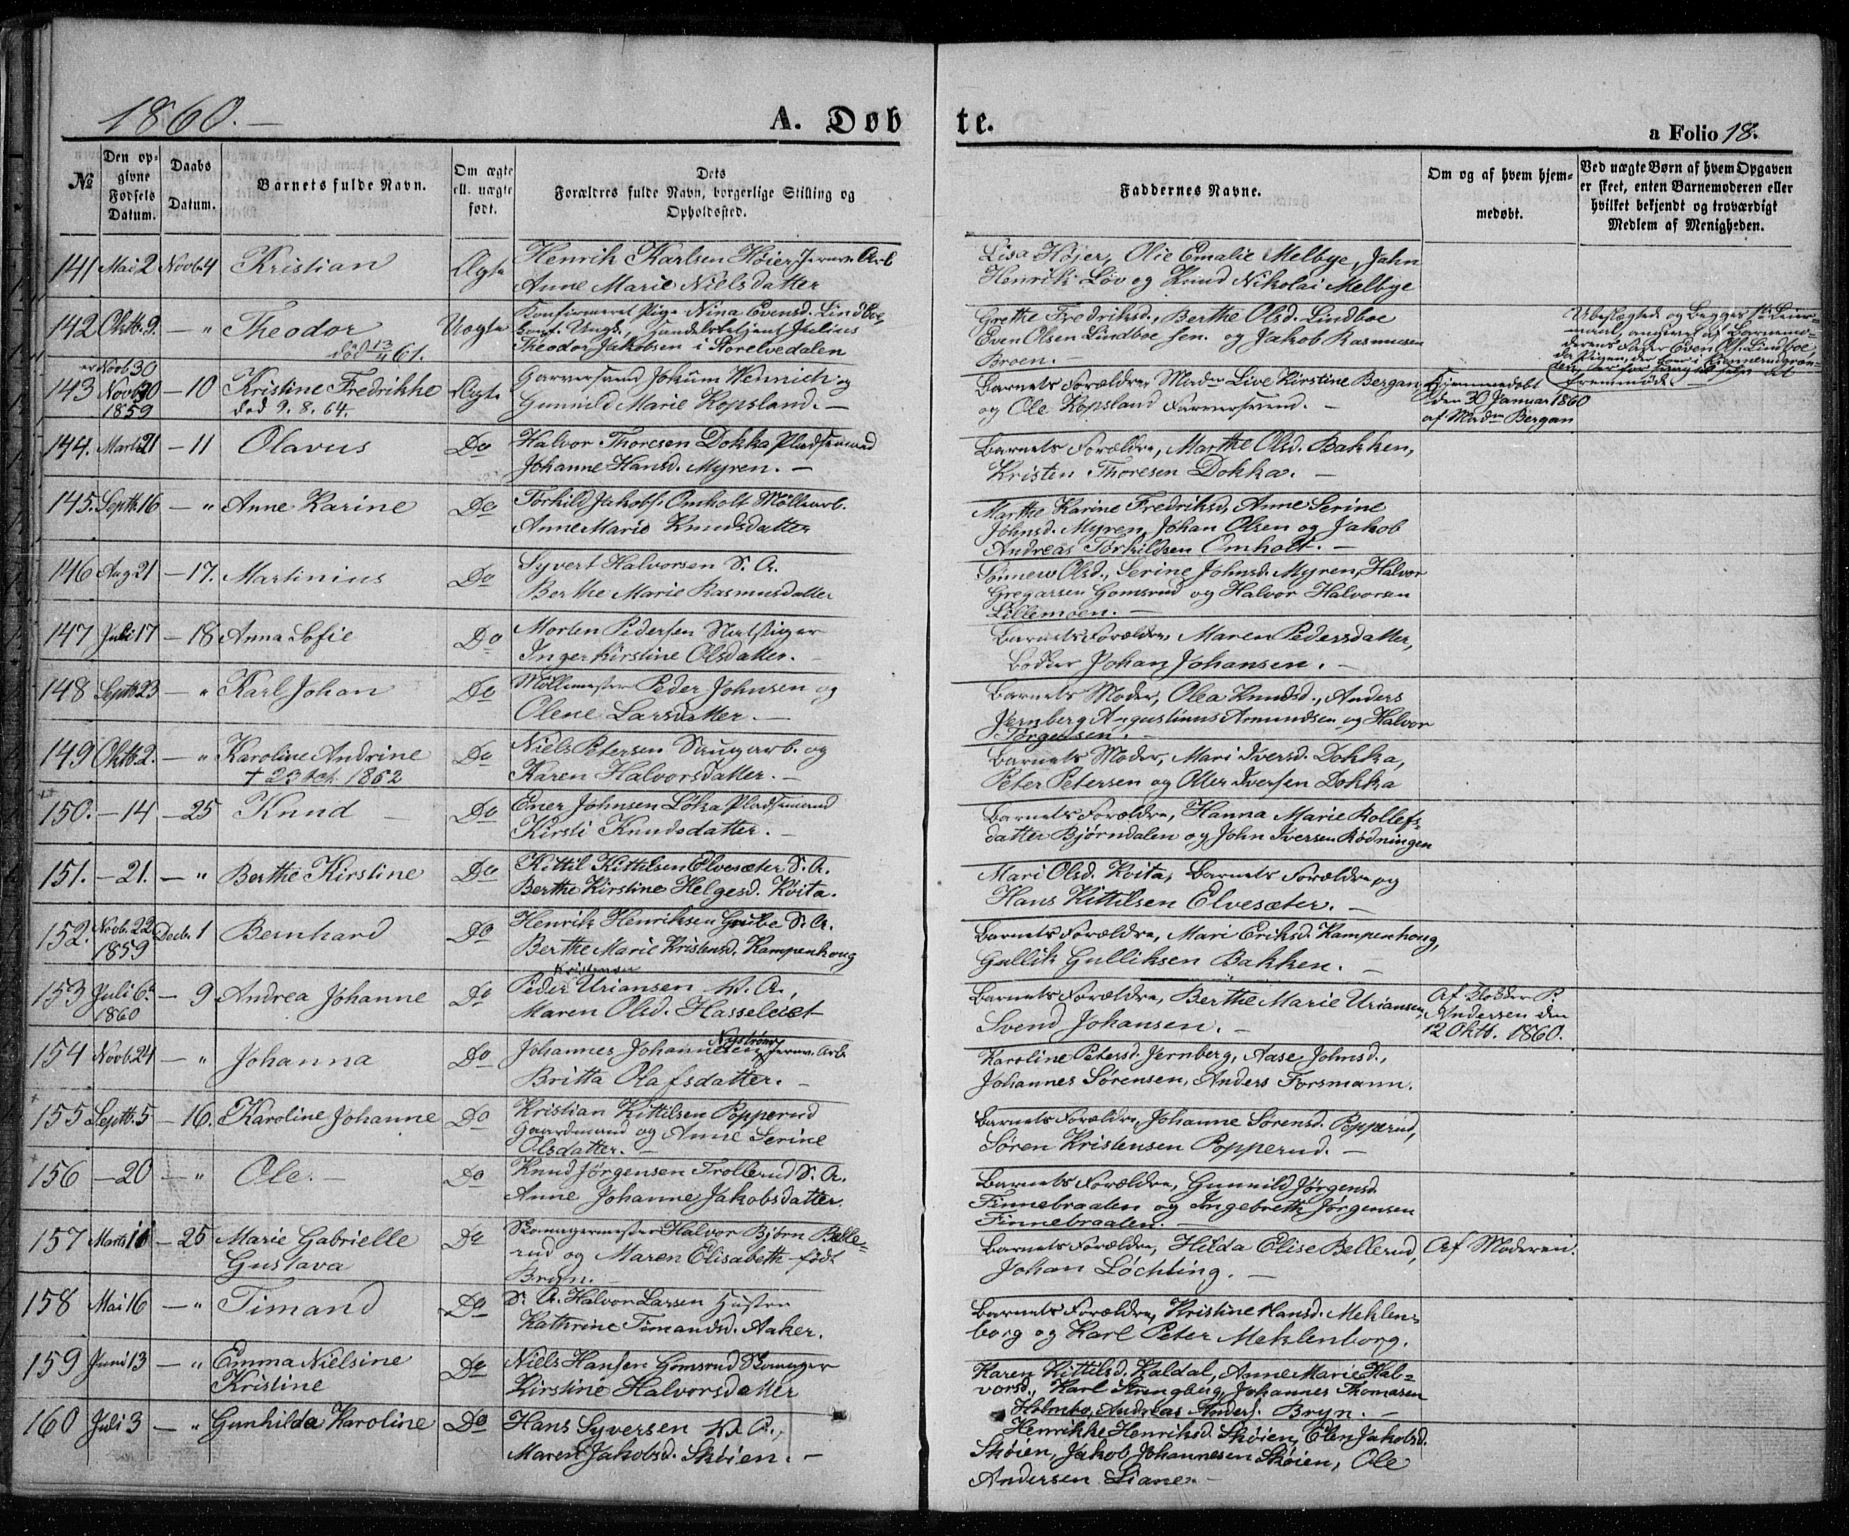 1860.
A. Døbte.
a Folio 18.
№
Den opgivne Fødsels Datum.
Daabs Datum.
Barnets fulde Navn.
Om ægte ell. uægte født.
Dets Forældres fulde Navn, borgerlige Stilling og Opholdssted.
Faddernes Navne.
Om og af hvem hjemmedøbt.
Ved uægte Børn af hvem Opgaven er skeet, enten Barnemoderen eller hvilket bekjendt og troværdigt Medlem af Menigheden.
141 Mai 2 Novb. 4 Kristian Ægte Henrik Karlsen Höier Jernv. Arb
Anne Marie Nielsdatter
Lisa Höjer, Olie Emalie Melbye, Jahn
Henrik Löv og Knud Nikolai Melbye
142 Oktb. 2. — " Theodor Uægte Konfirmeret Pige Nina Evensd. Lindboe,
död 13/11 61.
Konf. Ungk. Handelsbetjent Julius
Theodor Jakobsen i Storelvedalen
Grethe Fredriksd., Berthe Olsd. Lindboe
Even Olsen Lindboe sen. og Jakob Rasmussen
Broen. —
Ubeslægtede og Begges 1ste Leiermaal, angivet af Barnemoderens Fader Even Ols. Lindboe
143 Novb 30 1859 — 10 Kristine Fredrikke Ægte Garversvend Jokum Wennich og
död 9. 8. 64.
Gunnild Marie Kopsland. —
Barnets Forældre, Madm Live Kirstine Bergan,
og Ole Kopsland Farversvend. —
Hjemmedöbt
den 30 Januar 1860
af Madm Bergan
144. Marts 21 — 11 Olavus Do Halvor Thoresen Dokka Pladsemand
Johanne Hansd. Myren. —
Barnets Forældre, Marthe Olsd. Bakken,
Kristen Thoresen Dokka. —
145. Septb. 16 — " Anne Karine Do Torkild Jakobs. Omholt Möllearb.
Anne Marie Knudsdatter
Marthe Karine Fredriksd, Anne Serine
Johnsd. Myren, Johan Olsen og Jakob
Andreas Torkildsen Omholt. —
146 Aug 21 — 17. Martinius Do Syvert Halvorsen S. A.
Berthe Marie Rasmusdatter
Tönnew Olsd., Serine Johnsd. Myren, Halvor
Gregarsen Gomsrud og Halvor Halvorsen
Lillemoen. —
147 Juli 17 — 18 Anna Sofie Do Morten Pedersen
Inger Kirstine Olsdatter. —
Barnets Forældre, Maren Pedersdatter,
Johan Johansen. —
148 Septb. 23 — " Karl Johan Do Möllemester Peder Johnsen og
Olene Larsdatter. —
Barnets Moder, Olea Knudsd., Anders
Jernberg Augustinus Amundsen og Halvor
Jörgensen. —
149 Oktb. 2. — " Karoline Andrine Do Niels Petersen Saugarb. og
Karen Halvorsdatter. —
Barnets Moder, Mari Iversd. Dokka,
Peter Petersen og Oller Iversen Dokka
150. — 14 — 25 Knud — Do Ener Johnsen Löka Pladsemand
Kirsti Knudsdatter. —
Barnets Forældre, Hanna Marie Rollefsdatter Björndalen og John Iversen Rödningen
151. — 21. — " Berthe Kirstine Do Kittil Kittilsen Elvesæter S. A.
Berthe Kirstine Helgesd. Kvita.
Mari Olsd. Kvita, Barnets Forældre og
Hans Kittilsen Elvesæter. —
152. Novb. 22 1859 Decb. 1 Bernhard Do Henrik Henriksen Grube S. A.
Berthe Marie Kristensd. Kampenhoug
Barnets Forældre, Mari Eriksd. Kampenhoug,
Gullik Gulliksen Bakken. —
153 Juli 6. 1860 — 9 Andrea Johanne Do Peder Uriansen V. A.
Maren Olsd. Hasseleiet
Barnets Forældre, Berthe Marie Uriansen,
Svend Johansen. —
Af P.
Andersen den
12 Oktb. 1860.
154 Novb. 24 — " Johanna Do Johannes Johannesen Nyström Jernv. Arb.
Britta Olafsdatter. —
Karoline Petersd. Jernberg, Aase Johnsd.,
Johannes Sörensen, Anders Forsmann.
155 Septb. 5 — 16. Karoline Johanne Do Kristian Kittilsen Popperud
Gaardmand og Anne Serine
Olsdatter. —
Barnets Forældre, Johanne Sörensd. Popperud,
Sören Kristensen Popperud. —
156 — 20 — " Ole. — Do Knud Jörgensen Trollerud S. A.
Anne Johanne Jakobsdatter.
Barnets Forældre, Gunnild Jörgensd.
Finnebraaten og Ingebreth Jörgensen
Finnebraaten. —
157 Marts 16 — 25 Marie Gabrielle Gustava Do Skomagermester Halvor Björn Bellerud og Maren Elisabeth födt
Bryn. —
Barnets Forældre, Hilda Elise Bellerud,
Johan Löchting. —
Af Moderen.
158 Mai 16 — " Timand Do S. A. Halvor Larsen Hustru
Kathrine Timandsd. Aaker.
Barnets Forældre, Kristine Hansd. Mehlenborg og Karl Peter Mehlenborg.
159 Juni 13 — " Emma Nielsine Kristine Do Niels Hansen Gomsrud Skomager
Kirstine Halvorsdatter
Karen Kittilsd. Kaldal, Anne Marie Halvorsd., Karl Strengberg, Johannes Thomasen
Holmbo, Andreas Anders. Bryn. —
160 Juli 3 — " Gunhilda Karoline Do Hans Syversen V. A.,
Maren Jakobsd. Sköien. —
Henrikke Henriksd. Sköien, Elen Jakobsd.
Sköien, Jakob Johannesen Sköien, Ole
Andersen Liane. —